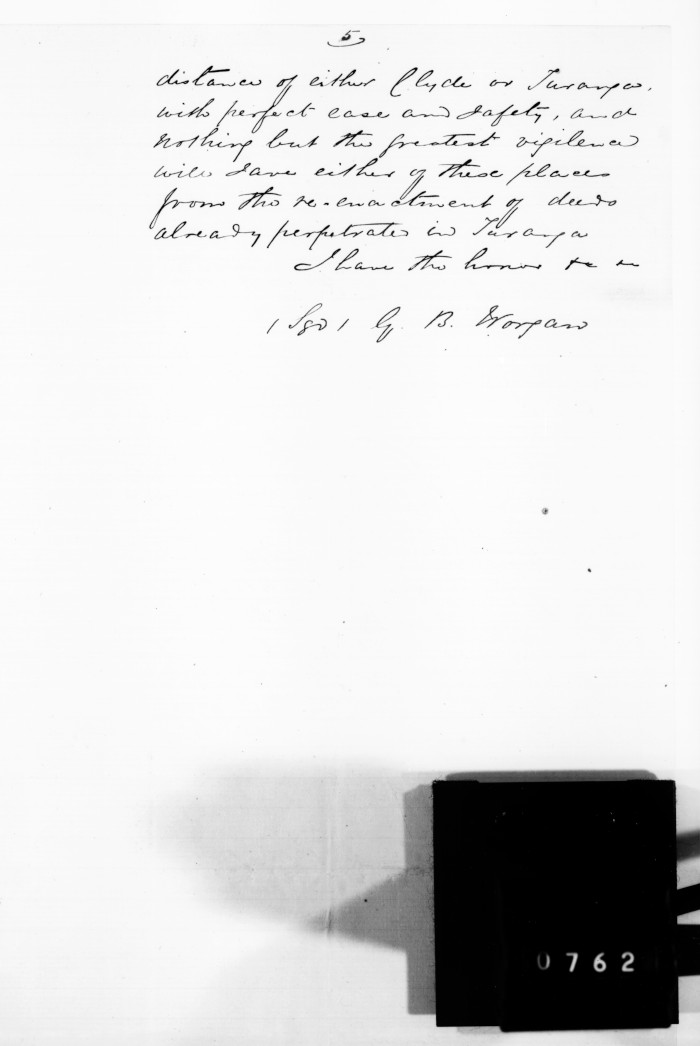 5
distance of either Clyde or Turanga,
with perfect ease and safety, and
nothing but the greatest vigilence
will save either of these places
from the re-enactment of deeds
already perpetrated in Turanga
I have the honor &c &c
(Sgd) G. B. Worgan
0762